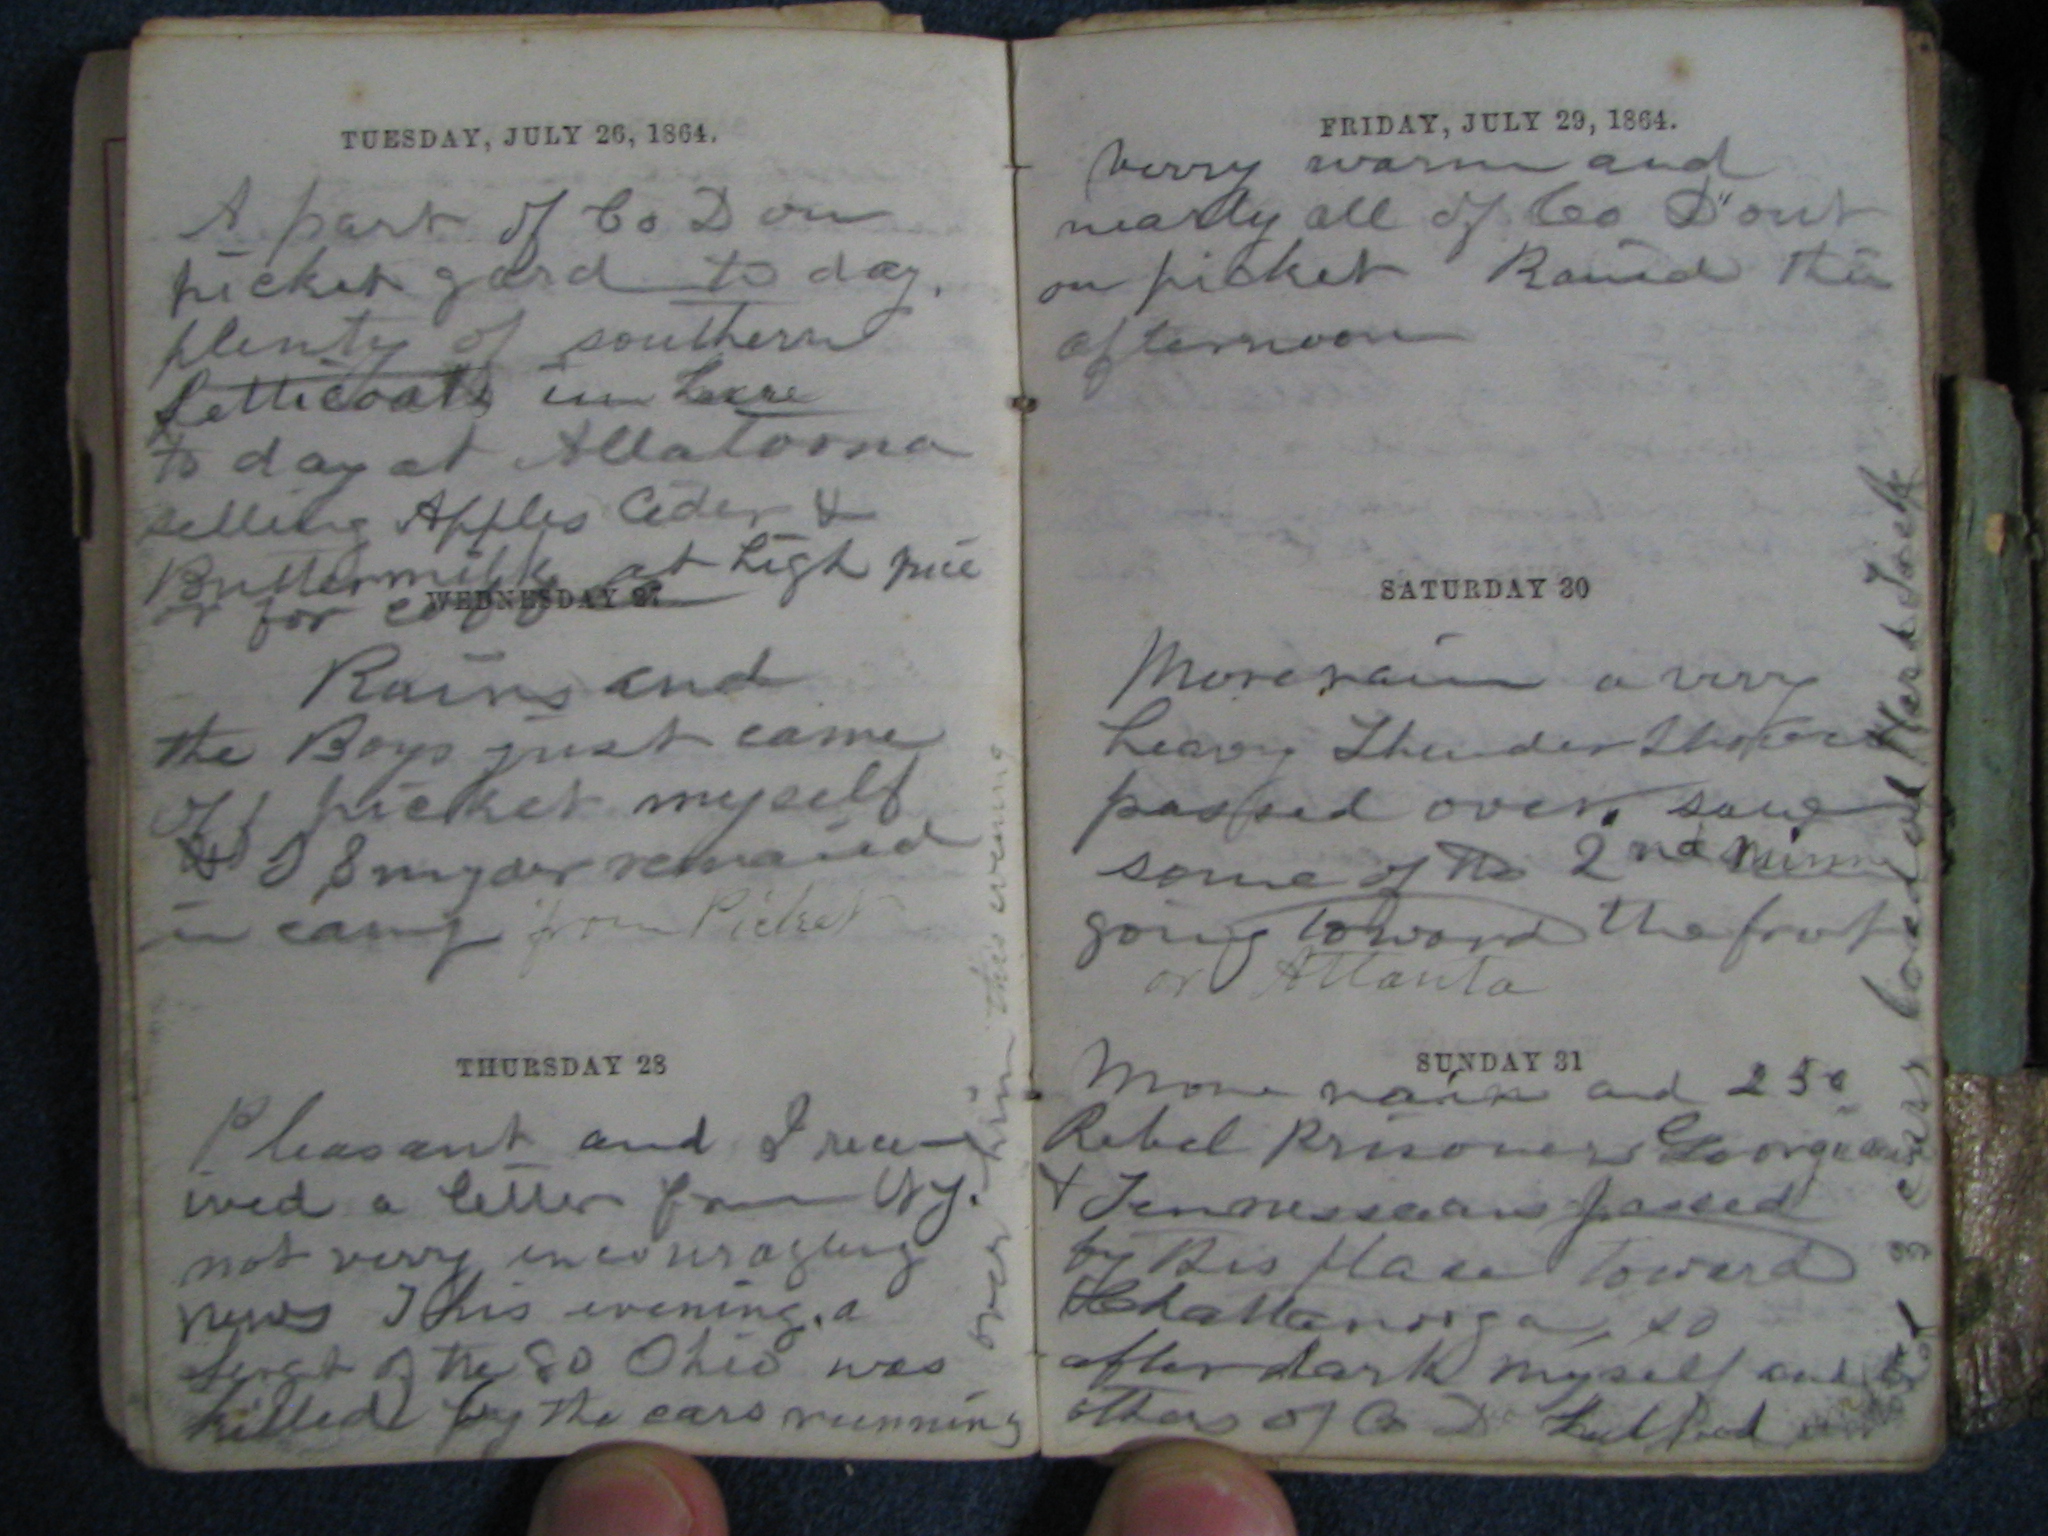 TUESDAY, JULY 26, 1864.
A part of Co D on
picket gard to day.
plenty of southern
Petticoats in here
to day at Allatoona
selling Apples Cider &
Buttermilk at high price
or for coffee
WEDNESDAY 27
Rains and
the Boys just came
off picket myself
& J Snyder remained
in camp from Picket
THURSDAY 28
Pleasant and I rece
ived a letter from NY.
not verry encouraging
news This evening. a
Sergt of the 80 Ohio was
killed by the cars running
over him this evening
FRIDAY, JULY 29, 1864.
Verry warm and
nearly all of Co D" out
on picket Rained this
afternoon
SATURDAY 30
More rain a verry
heavy Thunder Shower
passed over. saw
some of the 2nd Minn
going toward the front
or Atlanta
SUNDAY 31
More rain and 250
Rebel Prisoners Georgians
& Tennesseans passed
by this place toward
Chattanooga, so
after dark myself and
others of Co D helped
3 cars loaded of Hard Tack